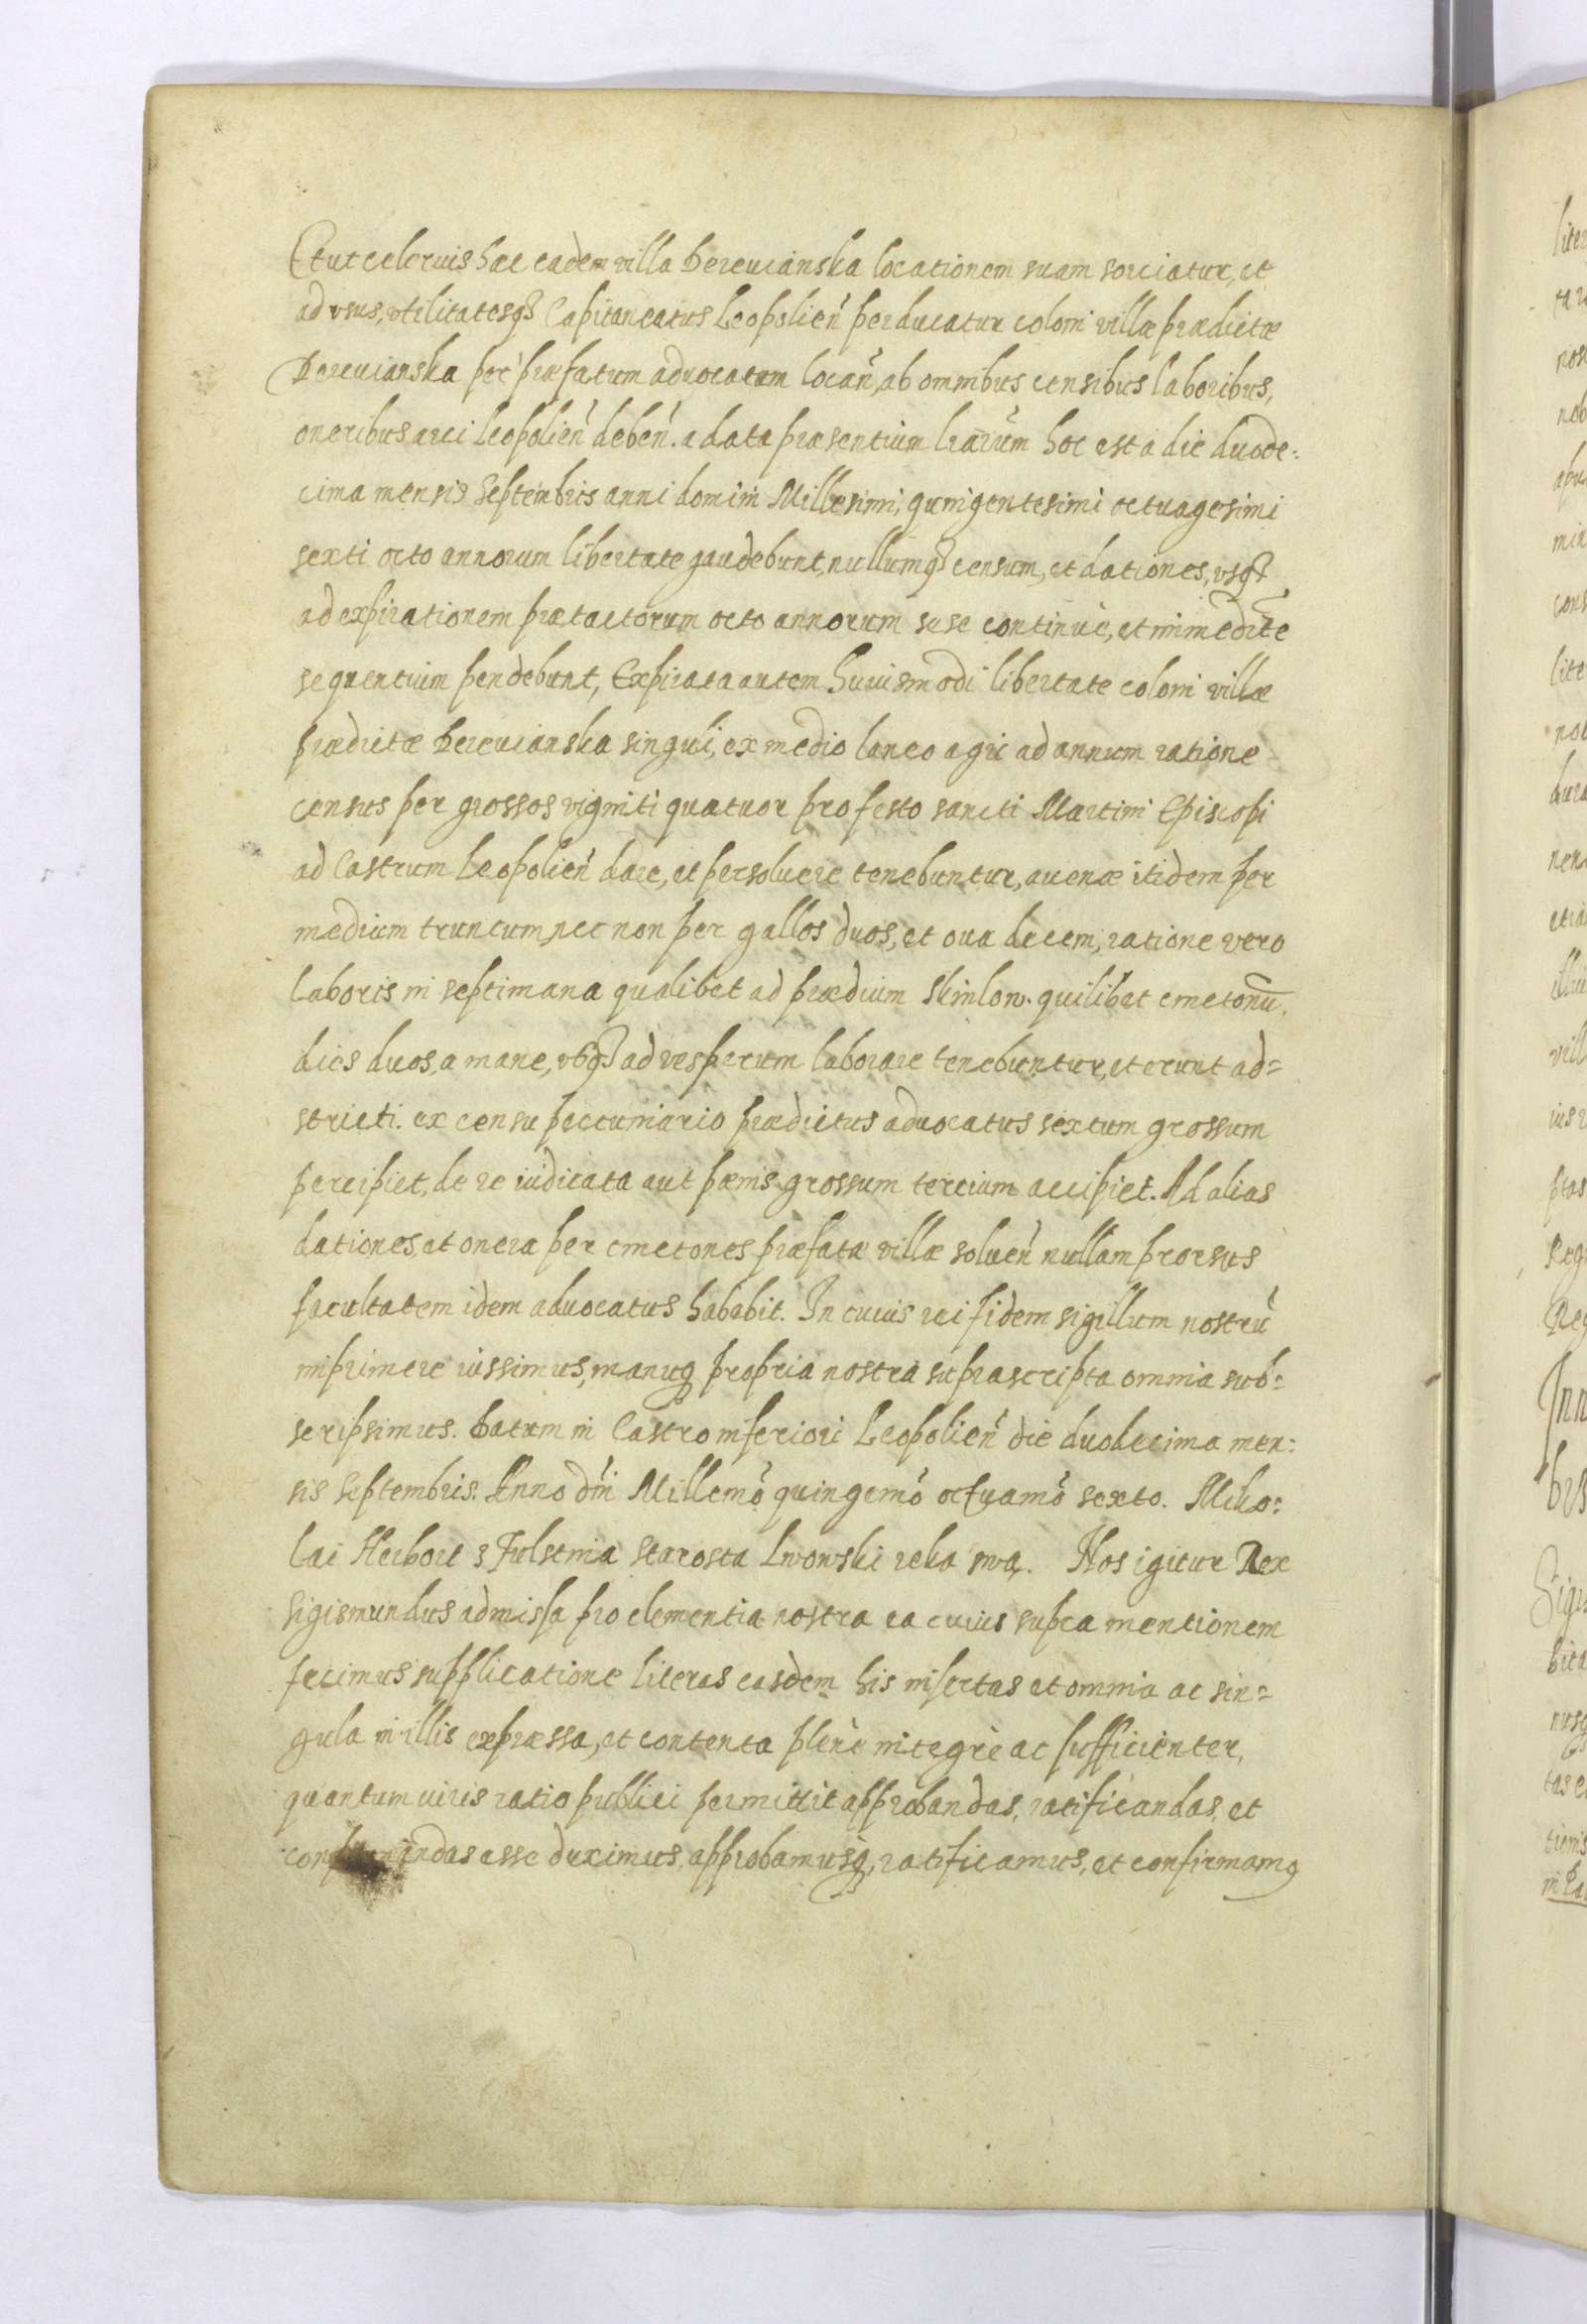 Et ut celerius hæc eadem villa Derevianska locationem suam sorciatur, et
ad usus, utilitatesq3 Capitaneatus Leopolien̄ perducatur coloni villæ prædictæ
Derevianska per præfatum advocatum locan̄, ab omnibus censibus laboribus,
oneribus arci Leopolien̄ deben̄. a data præsentium lrarūm hoc est a die duode:
cima mensis Septembris anni domini Millesimi, quingentesimi octuagesimi
sexti octo annorum libertate gaudebunt, nullumq3 censum, et dationes, usq3
ad expirationem prætactorum octo annorum sese continùe, et immediāte
sequentium pendebunt, Expirata autem huiusmodi libertate coloni villæ
prædictæ Derevianska singuli, ex medio laneo agri ad annum ratione
census per grossos viginti quatuor pro festo sancti Martini Episcopi
ad Castrum Leopolien̄ dare, et persoluere tenebuntur, auenæ itidem per
medium truncum, nec non per gallos duos, et oua decem, ratione vero
laboris in septimana qualibet ad prædium Skinlow. quilibet cmetonū,
dies duos, a mane, usq3 ad vesperum laborare tenebuntur, et erunt ad=
stricti. ex censu peccuniario prædictus aduocatus sextum grossum
percipiet, de re iudicata aut pænis grossum tercium accipiet. Ad alias
dationes, et onera per cmetones præfatæ villæ soluen̄ nullam prorsus
facultatem idem aduocatus habebit. In cuius rei fidem sigillum nostrū
imprimere iussimus, manuq3 propria nostra suprascripta omnia sub=
scripsimus. Datum in Castro inferiori Leopolien̄ die duodecima men:
sis Septembris. Anno dn̄i Millemō quingemō octuamō sexto. Miko:
lai Herbort z Fulstina Starosta Lwowski ręka swą. Nos igitur Rex
Sigismundus admissa pro clementia nostra ea cuius supra mentionem
fecimus supplicatione literas easdem his insertas et omnia ac sin=
gula in illis expressa, et contenta plenè integrè ac sufficienter,
quantum iuris ratio publici permittit approbandas, ratificandas, et
confirmandas esse duximus, approbamusq3, ratificamus, et confirmamq